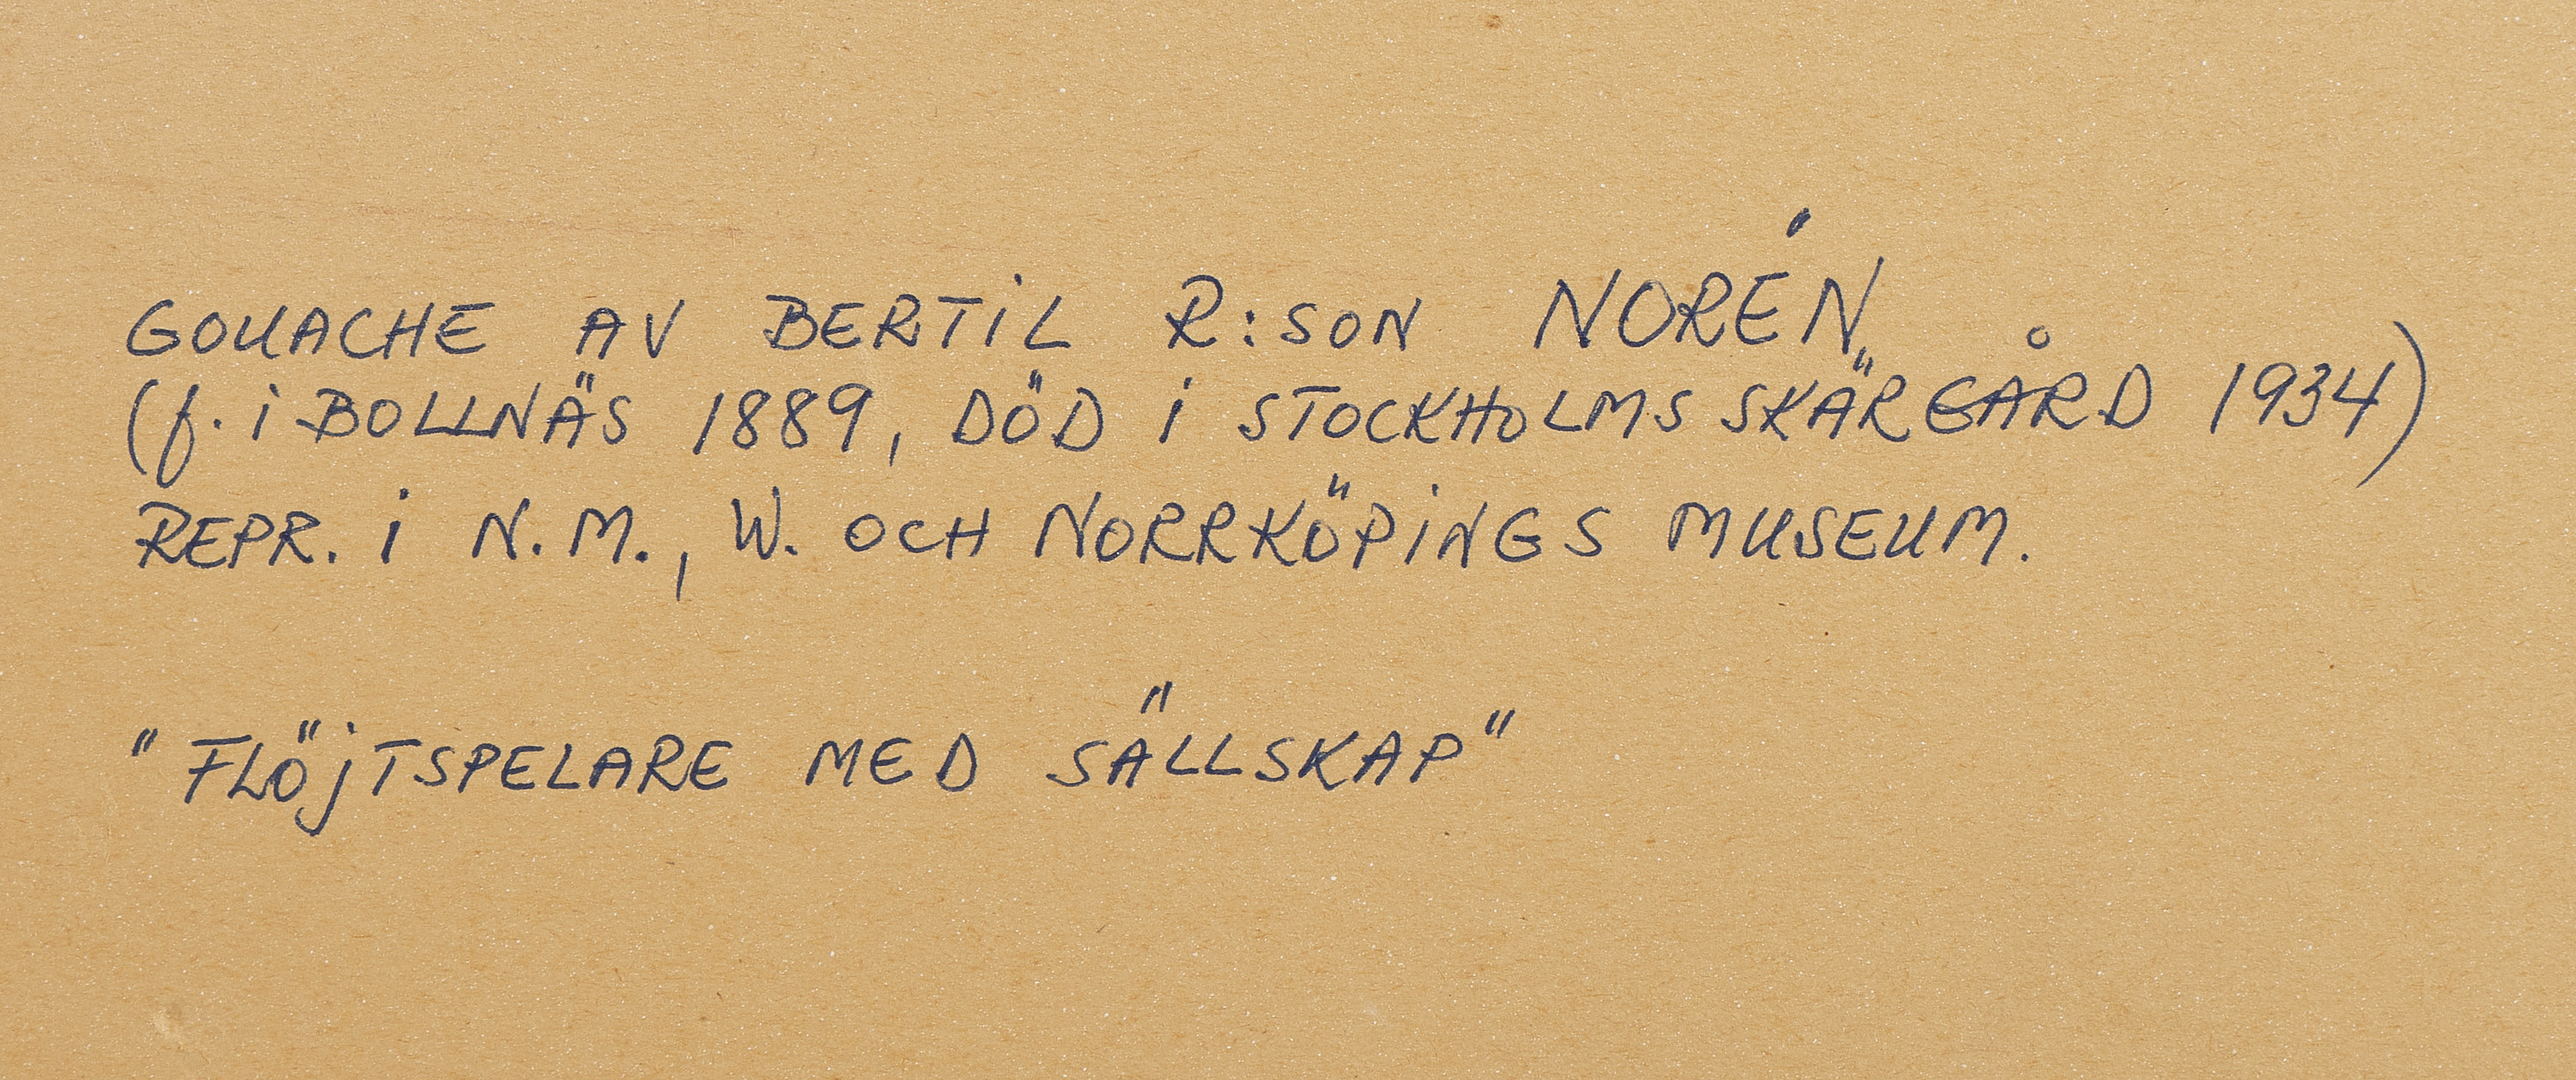 GOUACHE AV BERTiL R:SON NORÉN
(f. i BOLLNÄS 1889, DÖD i STOCKHOLMS SKÄRGÅRD 1934)
REPR. i N.M., W. OCH NORRKÖPiNGS MUSEUM.
"FLÖjTSPELARE MED SÄLLSKAP"